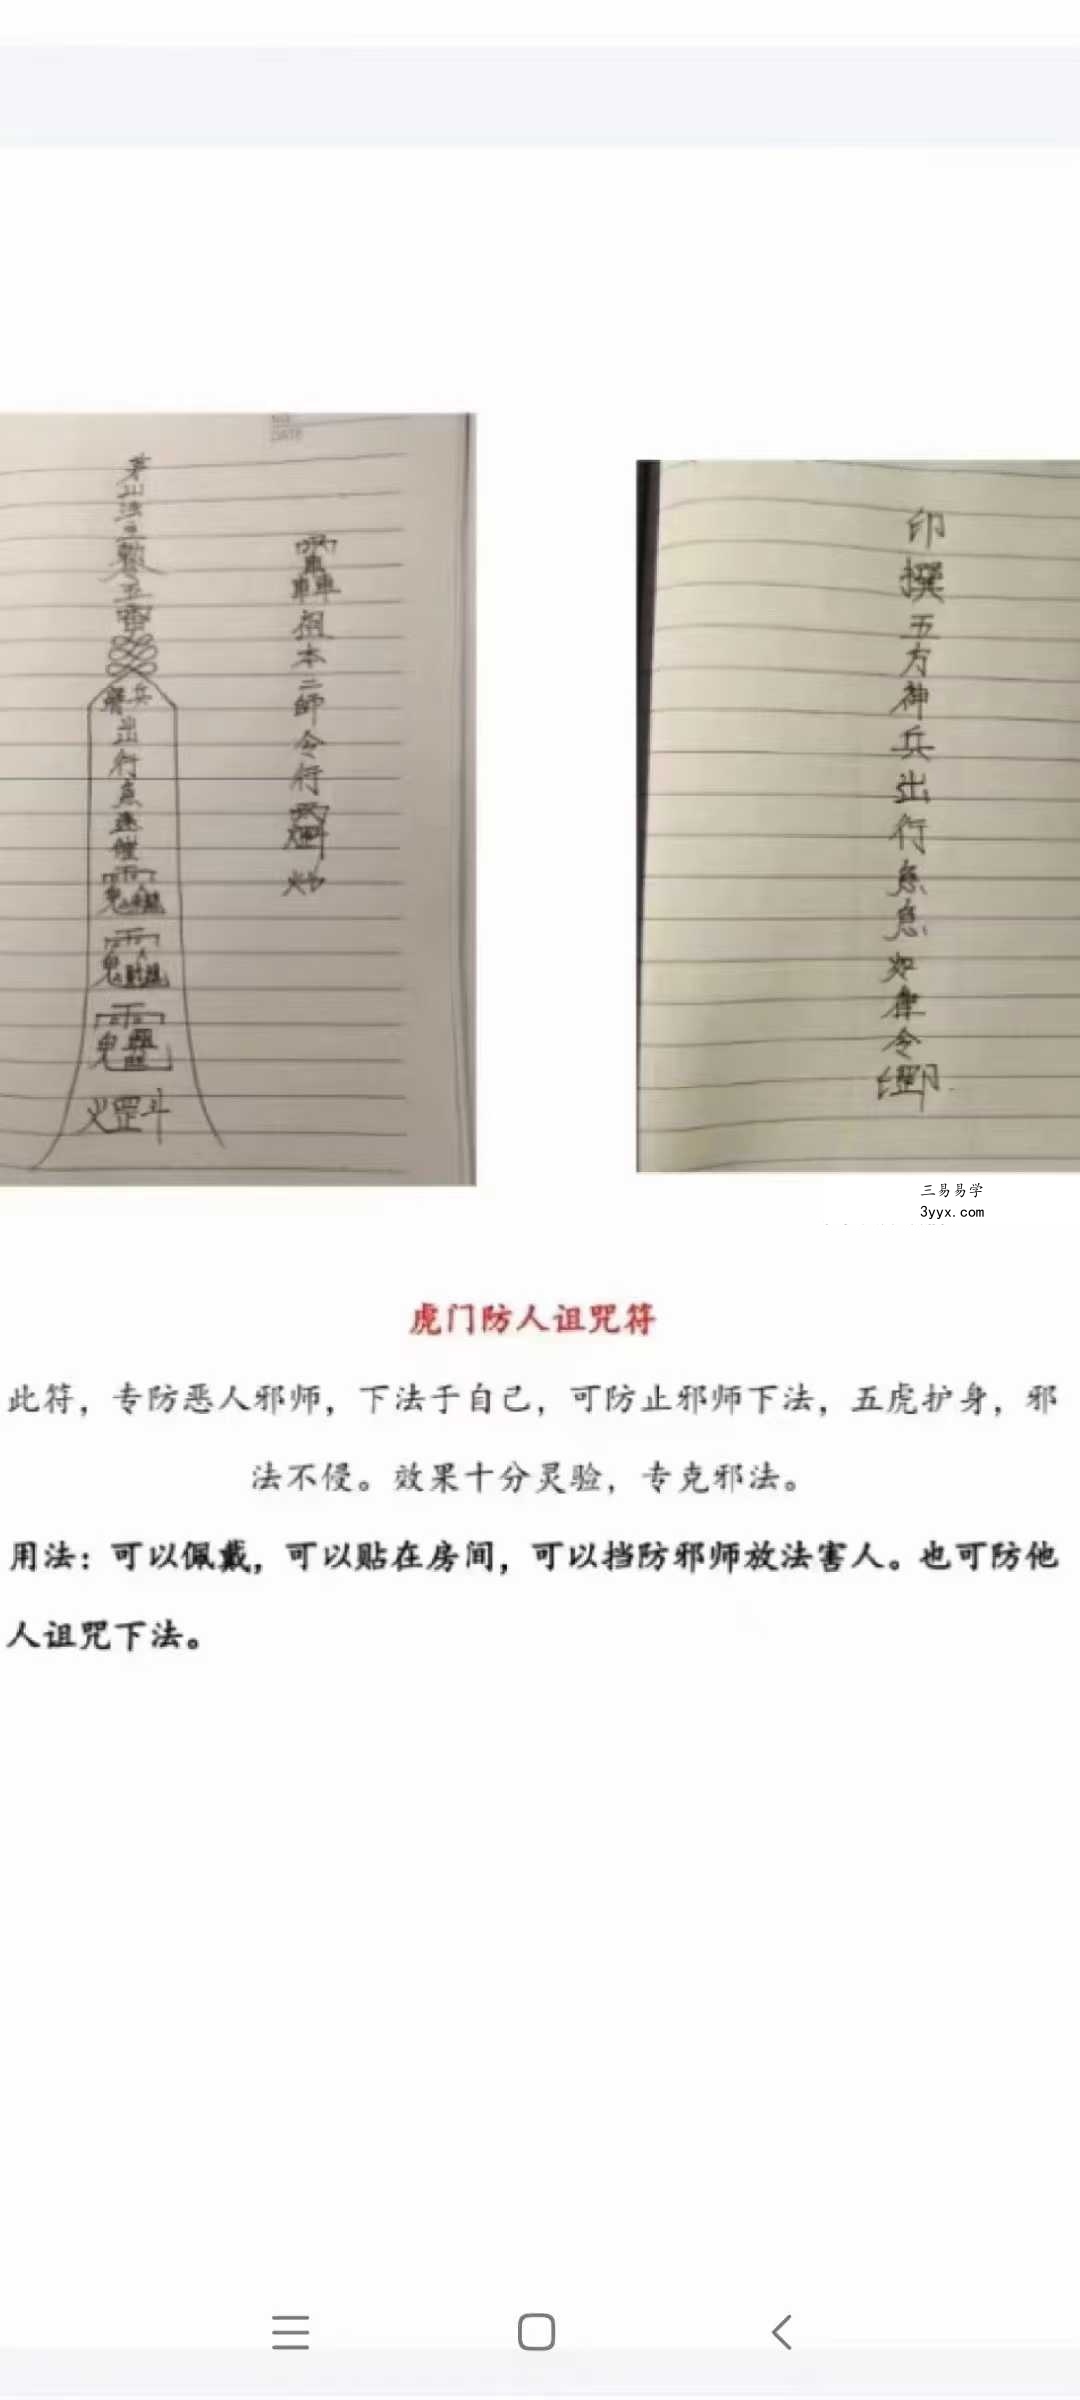 茅山法主敕令五雷
神兵
出行急速催
本二師令行
印撰五方神兵出行急急如律令
三易易学
3yyx.com
虎门防人诅咒符
此符，专防恶人邪师，下法于自己，可防止邪师下法，五虎护身，邪
法不侵。效果十分灵验，专克邪法。
用法：可以佩戴，可以贴在房间，可以挡防邪师放法害人。也可防他
人诅咒下法。